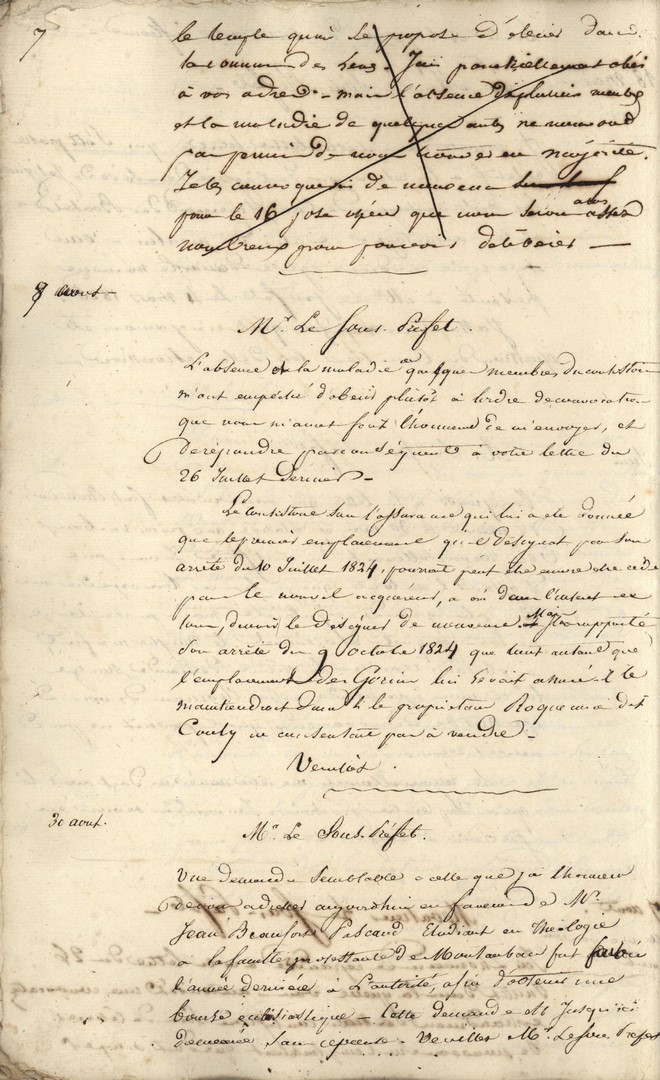 7
le temple qu'on se propose d'élever dans
la commune des
à vos ordres - mais l'absence de plusieurs membres
et la maladie de quelques autres ne nous ont
pas permis de nous trouver en majorité.
Je les de nouveau
pour le 16 jose espérer que nous serons alors assez
nombreux pour pouvoir délibérer —
8 aout -
Mr. Le Sous-Préfet.
L'absence et la maladie de quelques membres du consistoire
m'ont empêché d'obéir plutôt à lordre de convocation
que vous m'aviez fait l'honneur de m'envoyer, et
de répondre par conséquent à votre lettre du
26 Juillet dernier -
Le consistoire sur l'assurance qui lui a été donnée
que le premier emplacement qu'il désignat par son
arrêté du 10 Juillet 1824, pourrait peut être encore être cédé
par le nouvel acquéreur, a
devoir le désigner de nouveau. Mais
son arrêté du 9 octobre 1824 que tout autant que
l'emplacement de lui seroit assuré. Il le
maintiendroit le propriétaire Roque
ne consentait pas à vendre -
Veuillés.
30 aout.
Mr. Le Sous-Préfet.
Une demande semblable a celle que j'ai l'honneur
de vous adresser aujourdhui en faveur de Mr.
Jean Beaufort Pascaud Etudiant en Théologie
a la faculté protestante de Montauban fut faite
l'année dernière à L'autorité, afin d'obtenir une
bourse ecclésiastique - Cette demande est Jusqu'ici
demeurée sans réponse - Veuillez Mr. Le Sous Préfet